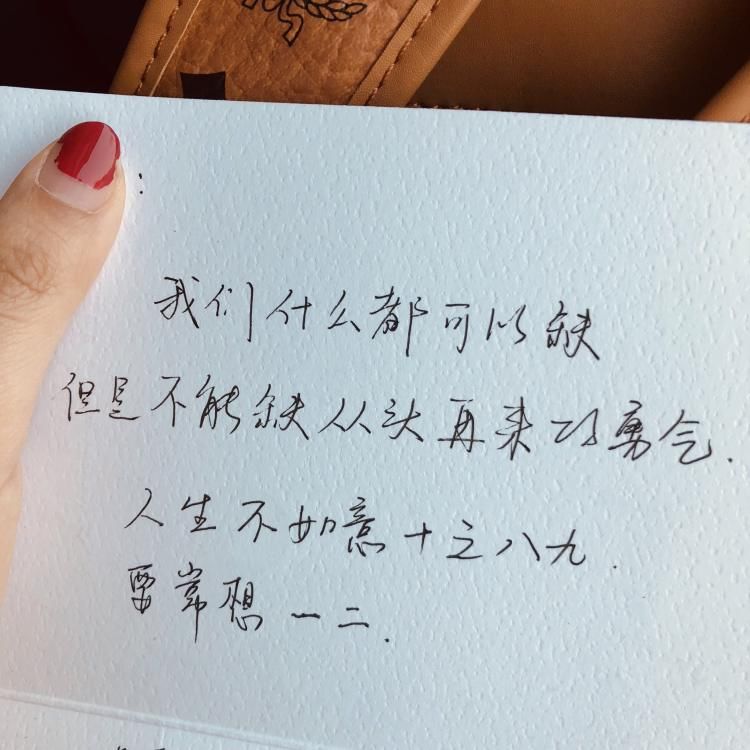 :
我们什么都可以缺
但是不能缺从头再来的勇气.
人生不如意十之八九.
要常想一二.